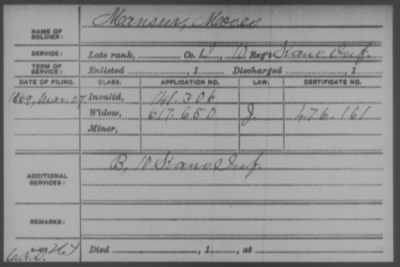 NAME OF SOLDIER: Mansur, Moses
SERVICE: Late rank, Co. D, 10 Reg't Kans Inf.
TERM OF SERVICE: Enlisted , 1 Discharged , 1
DATE OF FILING. CLASS. APPLICATION NO. LAW. CERTIFICATE NO.
1869, Mar. 27 Invalid, 141.306
Widow, 617.650 J. 476.161
Minor,
ADDITIONAL SERVICES: B, 10 Kans Inf.
REMARKS:
Died , 1 , at